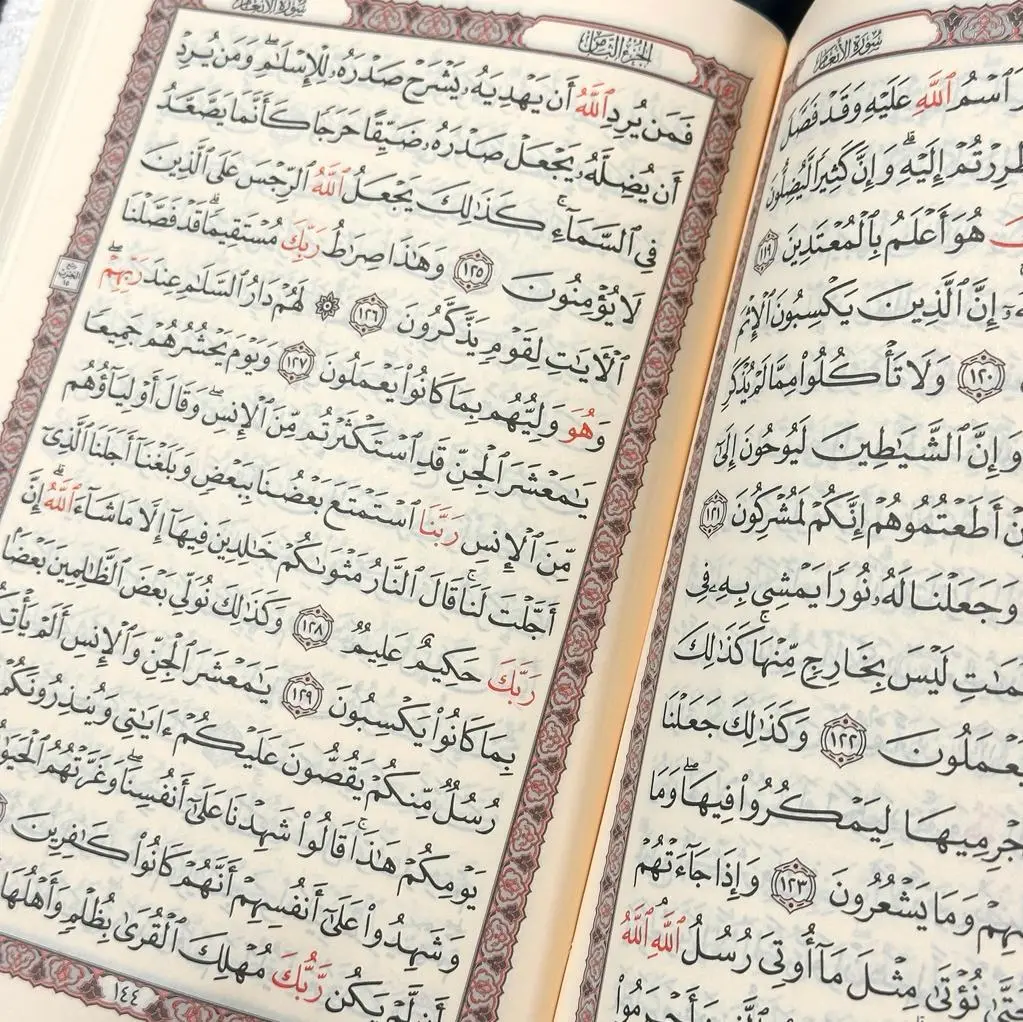 سُورَةُ الأَنْعَامِ
ٱسْمُ ٱللَّهِ عَلَيْهِ وَقَدْ فَصَّلَ
طُرِرْتُمْ إِلَيْهِ ۗ وَإِنَّ كَثِيرًا لَّيُضِلُّونَ
هُوَ أَعْلَمُ بِٱلْمُعْتَدِينَ ١١٩
إِنَّ ٱلَّذِينَ يَكْسِبُونَ ٱلْإِثْمَ
١٢٠ وَلَا تَأْكُلُوا۟ مِمَّا لَمْ يُذْكَرِ
وَإِنَّ ٱلشَّيَـٰطِينَ لَيُوحُونَ إِلَىٰٓ
أَطَعْتُمُوهُمْ إِنَّكُمْ لَمُشْرِكُونَ ١٢١
وَجَعَلْنَا لَهُۥ نُورًا يَمْشِى بِهِۦ فِى
لَيْسَ بِخَارِجٍ مِّنْهَا ۚ كَذَٰلِكَ
يَعْمَلُونَ ١٢٢ وَكَذَٰلِكَ جَعَلْنَا
جْرِمِيهَا لِيَمْكُرُوا۟ فِيهَا ۖ وَمَا
وَمَا يَشْعُرُونَ ١٢٣ وَإِذَا جَآءَتْهُمْ
نُؤْتَىٰ مِثْلَ مَآ أُوتِىَ رُسُلُ ٱللَّهِ ۘ ٱللَّهُ
الجُزْءُ الثَّامِنُ
سُورَةُ الأَنْعَامِ
فَمَن يُرِدِ ٱللَّهُ أَن يَهْدِيَهُۥ يَشْرَحْ صَدْرَهُۥ لِلْإِسْلَـٰمِ ۖ وَمَن يُرِدْ
أَن يُضِلَّهُۥ يَجْعَلْ صَدْرَهُۥ ضَيِّقًا حَرَجًا كَأَنَّمَا يَصَّعَّدُ
فِى ٱلسَّمَآءِ ۚ كَذَٰلِكَ يَجْعَلُ ٱللَّهُ ٱلرِّجْسَ عَلَى ٱلَّذِينَ
لَا يُؤْمِنُونَ ١٢٥ وَهَـٰذَا صِرَٰطُ رَبِّكَ مُسْتَقِيمًا ۗ قَدْ فَصَّلْنَا
ٱلْـَٔايَـٰتِ لِقَوْمٍ يَذَّكَّرُونَ ١٢٦ ۞ لَهُمْ دَارُ ٱلسَّلَـٰمِ عِندَ رَبِّهِمْ ۖ
وَهُوَ وَلِيُّهُم بِمَا كَانُوا۟ يَعْمَلُونَ ١٢٧ وَيَوْمَ يَحْشُرُهُمْ جَمِيعًا
يَـٰمَعْشَرَ ٱلْجِنِّ قَدِ ٱسْتَكْثَرْتُم مِّنَ ٱلْإِنسِ ۖ وَقَالَ أَوْلِيَآؤُهُم
مِّنَ ٱلْإِنسِ رَبَّنَا ٱسْتَمْتَعَ بَعْضُنَا بِبَعْضٍ وَبَلَغْنَآ أَجَلَنَا ٱلَّذِىٓ
أَجَّلْتَ لَنَا ۚ قَالَ ٱلنَّارُ مَثْوَىٰكُمْ خَـٰلِدِينَ فِيهَآ إِلَّا مَا شَآءَ ٱللَّهُ ۗ إِنَّ
رَبَّكَ حَكِيمٌ عَلِيمٌ ١٢٨ وَكَذَٰلِكَ نُوَلِّى بَعْضَ ٱلظَّـٰلِمِينَ بَعْضًۢا
بِمَا كَانُوا۟ يَكْسِبُونَ ١٢٩ يَـٰمَعْشَرَ ٱلْجِنِّ وَٱلْإِنسِ أَلَمْ يَأْتِكُمْ
رُسُلٌ مِّنكُمْ يَقُصُّونَ عَلَيْكُمْ ءَايَـٰتِى وَيُنذِرُونَكُمْ
يَوْمِكُمْ هَـٰذَا ۚ قَالُوا۟ شَهِدْنَا عَلَىٰٓ أَنفُسِنَا ۖ وَغَرَّتْهُمُ ٱلْحَيَوٰةُ
وَشَهِدُوا۟ عَلَىٰٓ أَنفُسِهِمْ أَنَّهُمْ كَانُوا۟ كَـٰفِرِينَ
أَن لَّمْ يَكُن رَّبُّكَ مُهْلِكَ ٱلْقُرَىٰ بِظُلْمٍ وَأَهْلُهَا
١٤٤